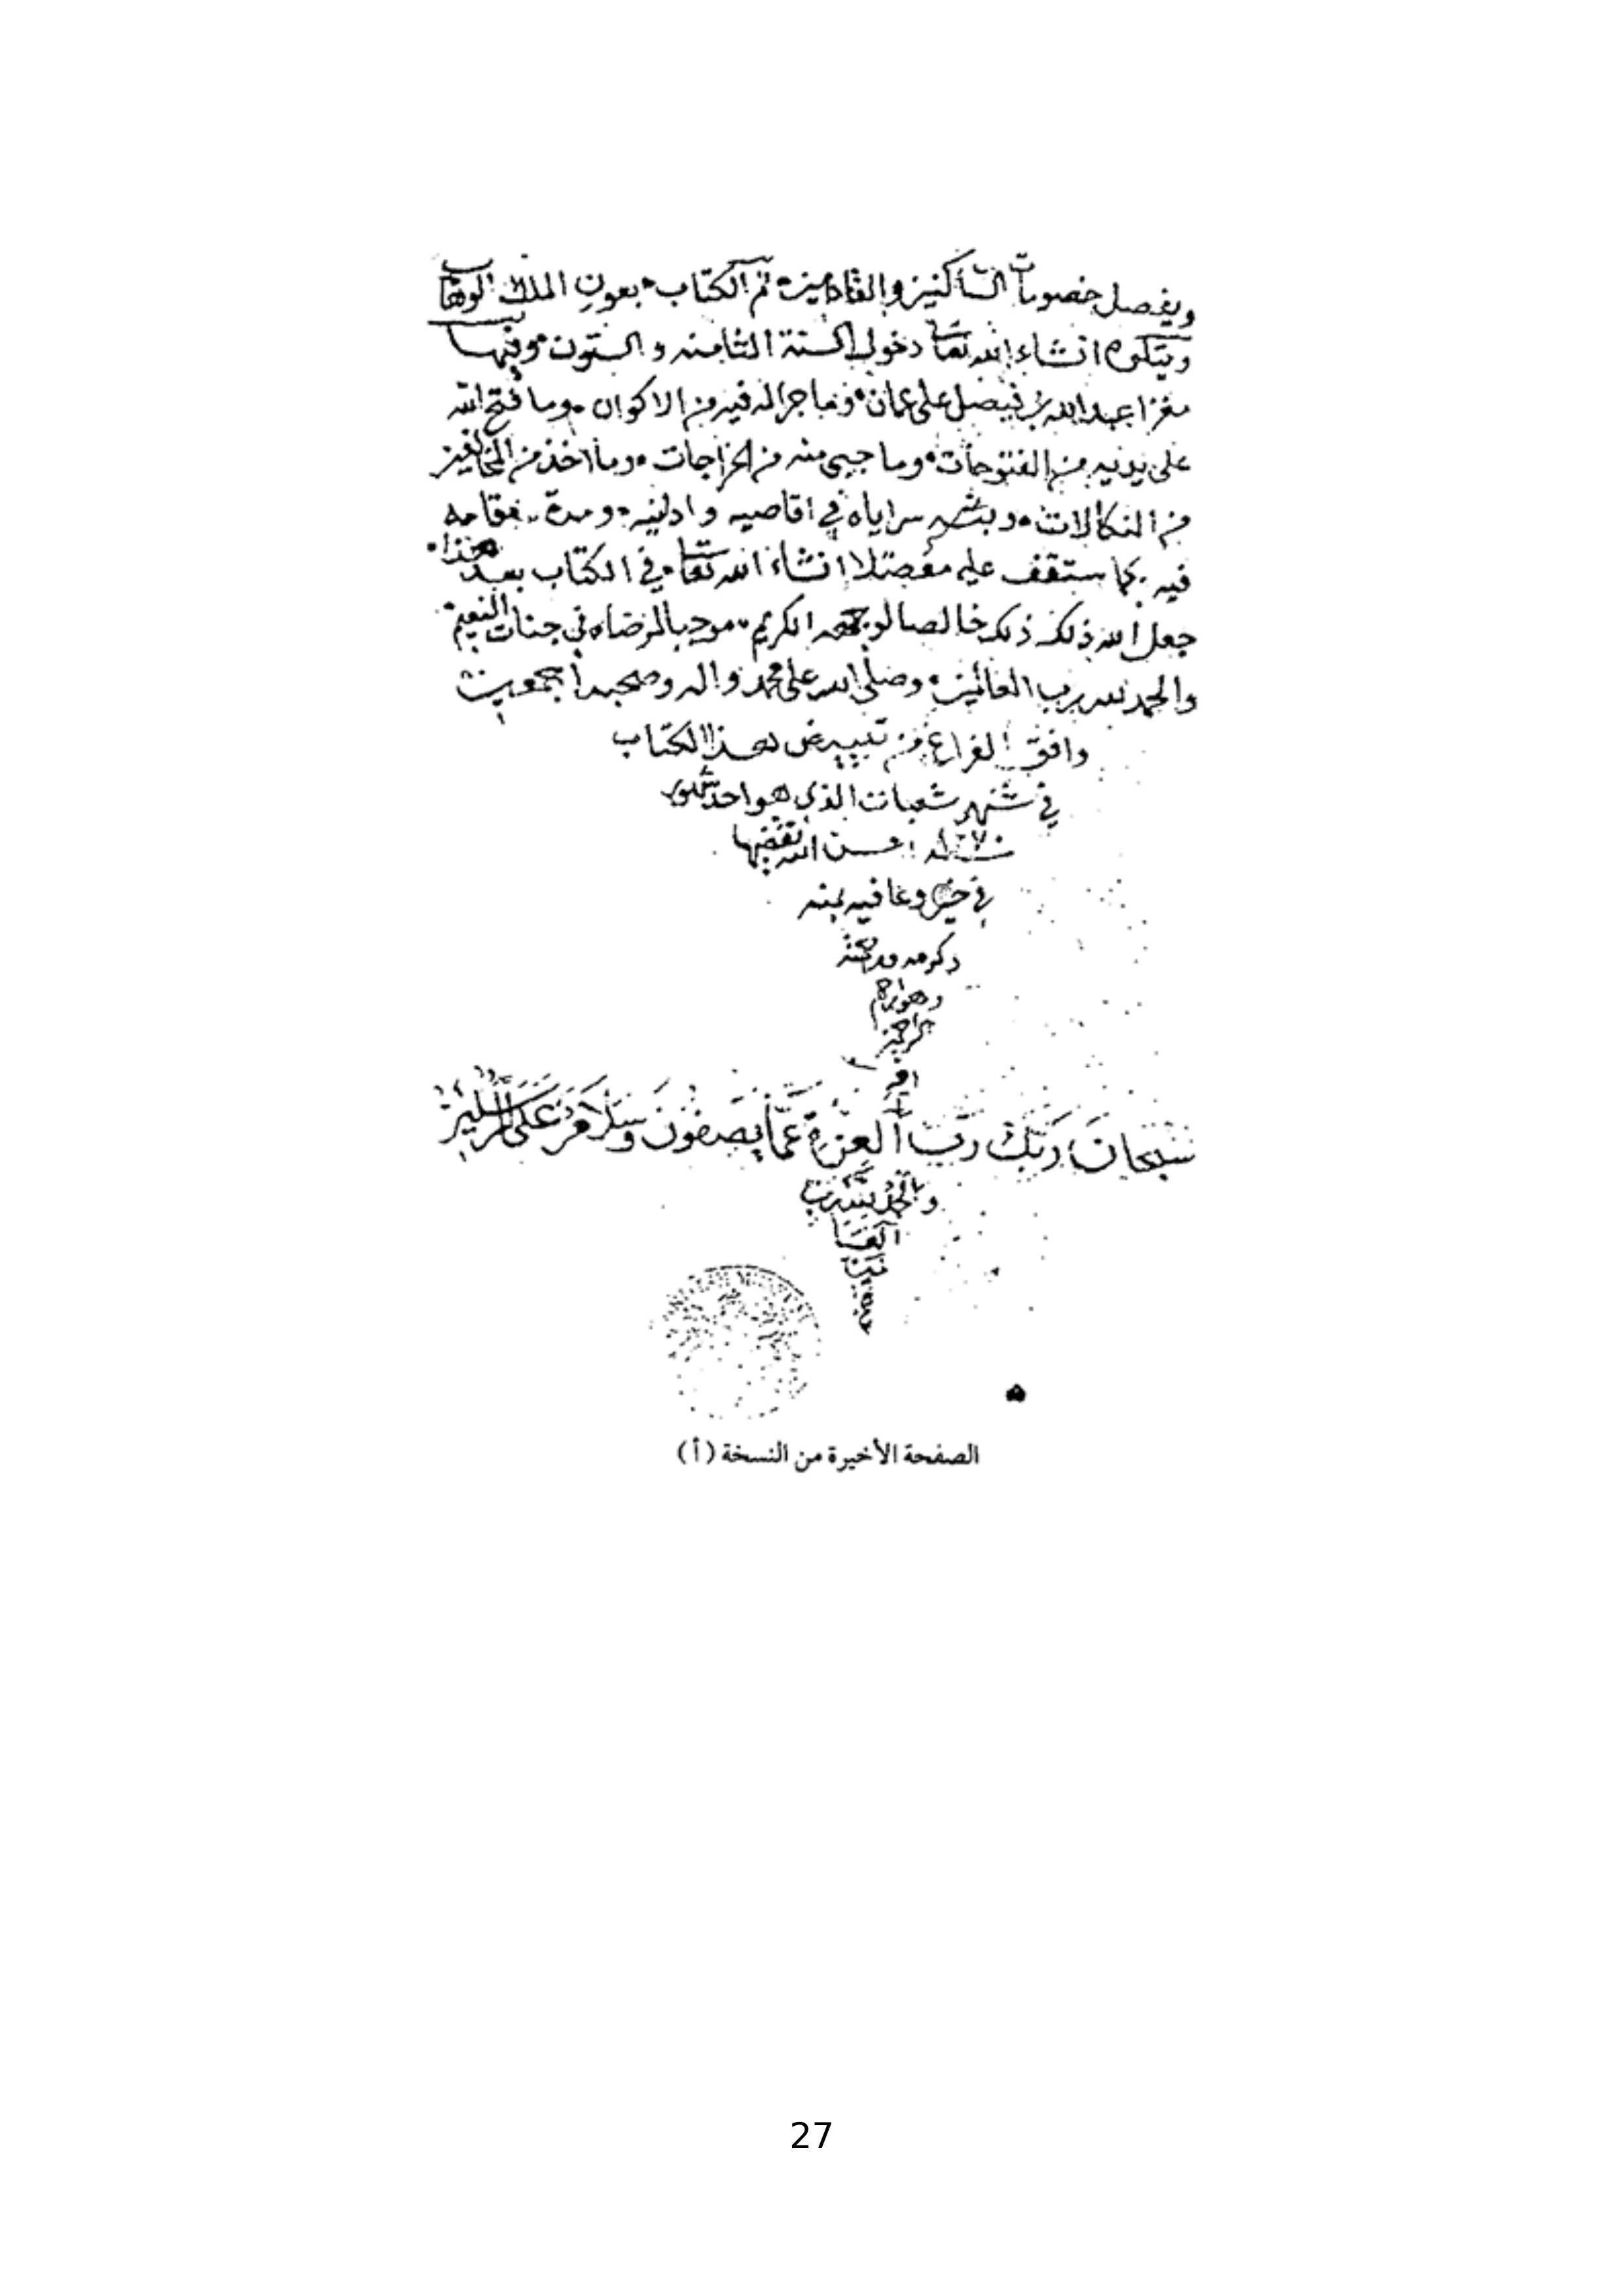 ويفصل خصومات الساكنين والقادمين تم الكتاب بعون الملك الوهاب
ويتلوه انشاء الله تعا دخول السنة الثامنه والستون وفيها
مغزا عبدالله بن فيصل على عمان وما جرا له فيه من الاكوان وما فتح الله
على يديه من الفتوحات وما جبى منه من الخراجات وما اخذ من المخالفين
من النكالات سراياه في اقاصيه وادانيه ومدة مقامه
فيه كما ستقف عليه مفصلا انشاء الله تعا في الكتاب بعد هذا
جعل الله ذلك ذلك خالصا لوجهه الكريم بالرضاه في جنات النعيم
والحمد لله رب العالمين وصلى الله على محمد واله وصحبه اجمعين
وافق الفراغ من تبييض هذا الكتاب
في شهر شعبان الذي هو احد شهور
احسن الله تقضيها
في خير وعافيه بمنه
وكرمه
وهو ارحم
الراحمين
امين
سُبحانَ رَبِّكَ رَبِّ العِزَّةِ عَمَّا يَصِفُونَ وَسَلَامٌ عَلَى المُرسَلِينَ
والحمد لله رب
العا
لمين
الصفحة الأخيرة من النسخة (أ)
27